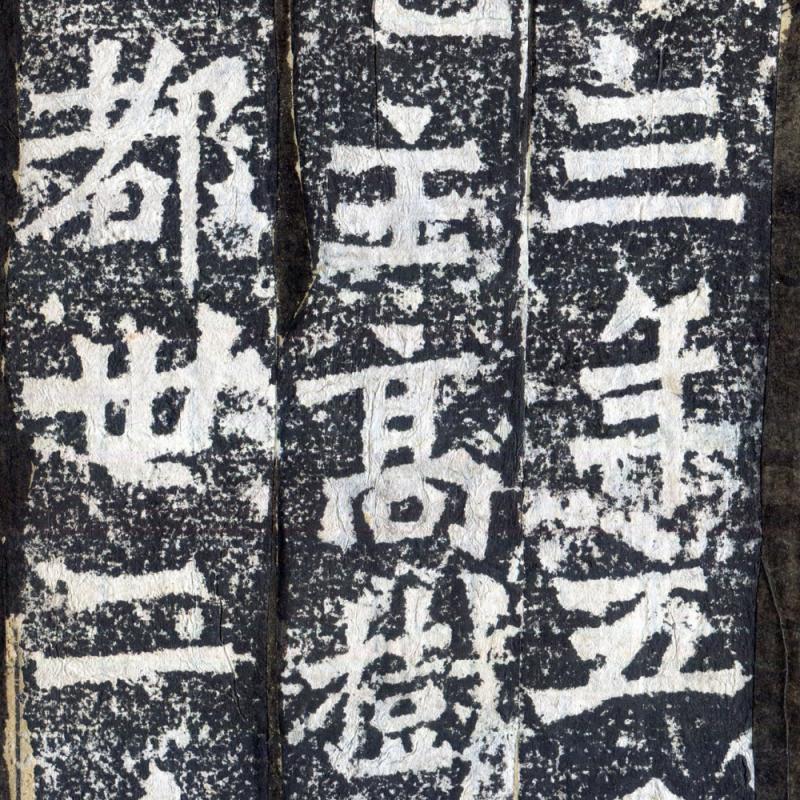 三年五
主高樹
都卅二